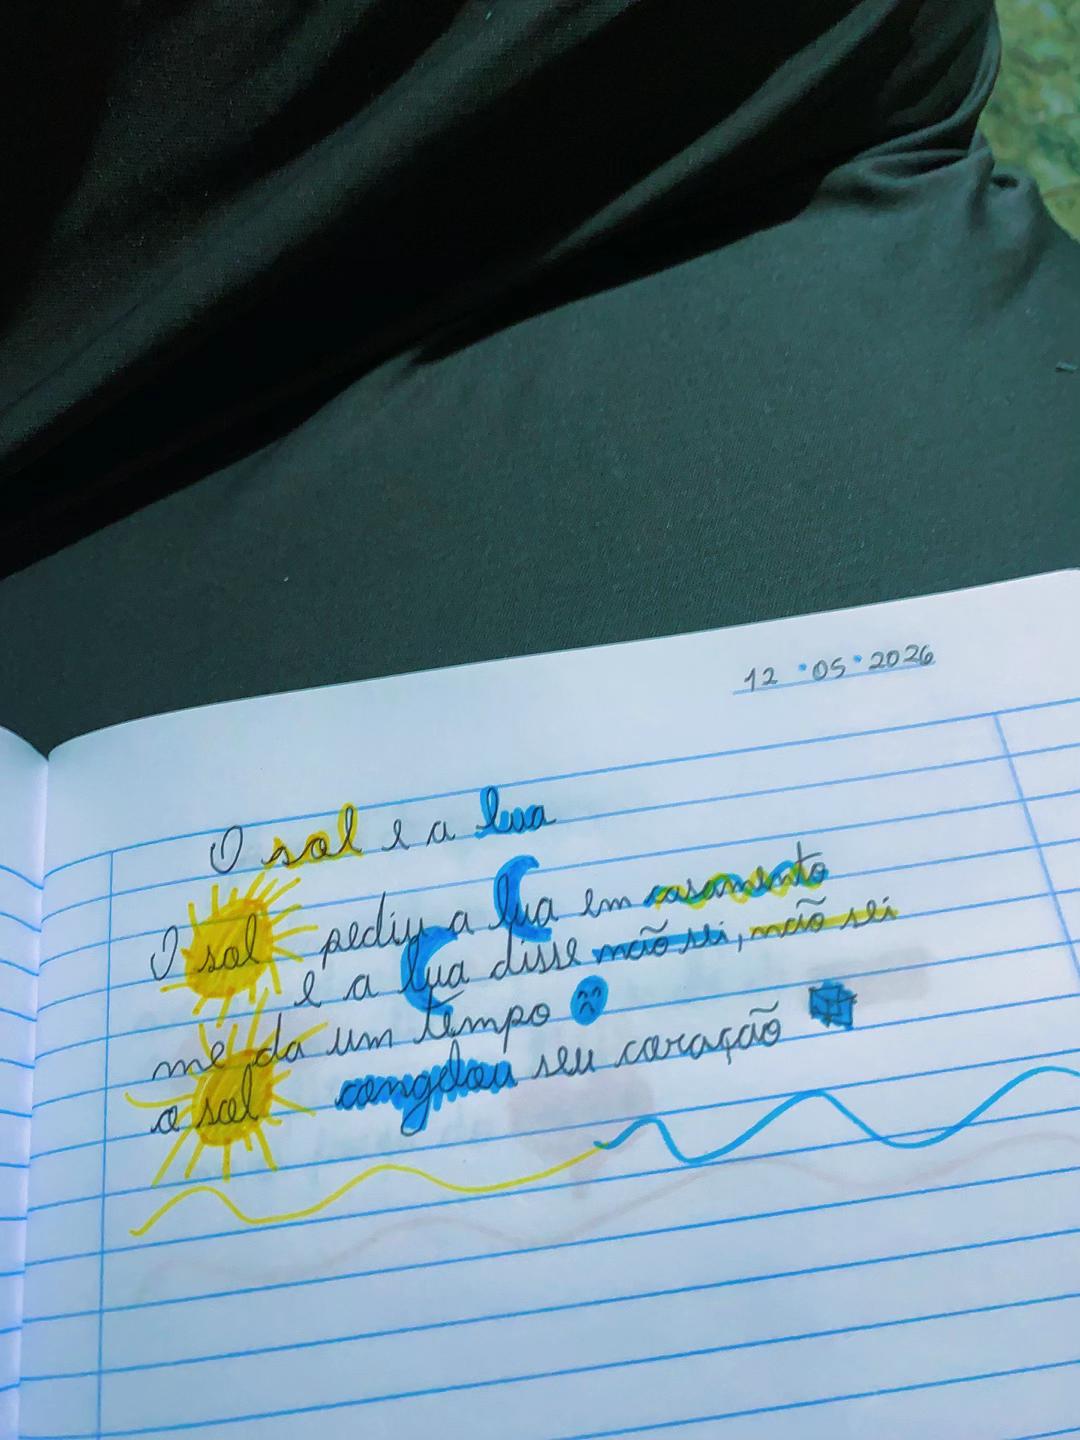 12 · 05 · 2026
O sol e a lua
O sol pediu a lua em casamento
e a lua disse não sei, não sei
me da um tempo
o sol congelou seu coração